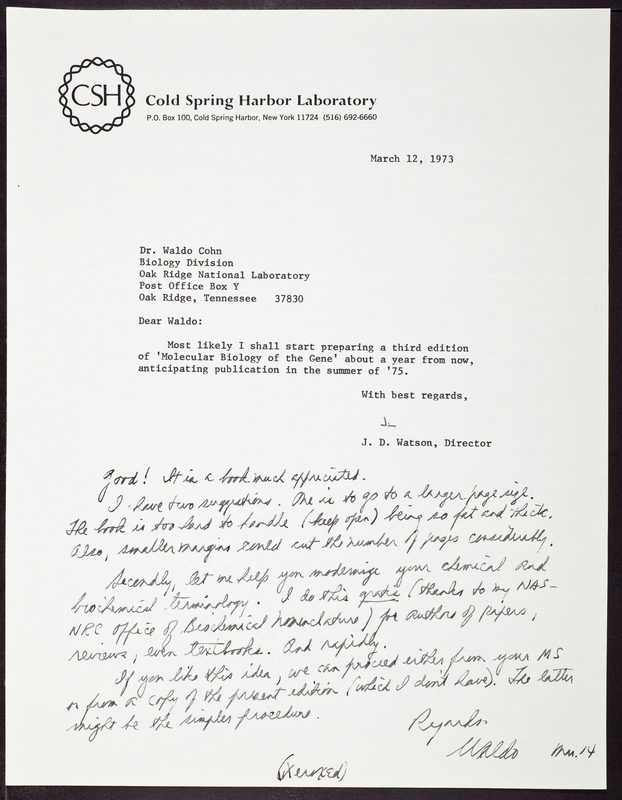 CSH
Cold Spring Harbor Laboratory
P.O. Box 100, Cold Spring Harbor, New York 11724 (516) 692-6660
March 12, 1973
Dr. Waldo Cohn
Biology Division
Oak Ridge National Laboratory
Post Office Box Y
Oak Ridge, Tennessee 37830
Dear Waldo:
Most likely I shall start preparing a third edition
of 'Molecular Biology of the Gene' about a year from now,
anticipating publication in the summer of '75.
With best regards,
J. D. Watson, Director
Good! It is a book much appreciated.
I have two suggestions. One is to go to a larger page size.
The book is too hard to handle (keep open) being so fat and thick.
Also, smaller margins could cut the number of pages considerably.
Secondly, let me help you modernize your chemical and
biochemical terminology. I do this gratis (thanks to my NAS-
NRC Office of Biochemical Nomenclature) for authors of papers,
reviews, even textbooks. And rapidly.
If you like this idea, we can proceed either from your MS
or from a copy of the present edition (which I don't have). The latter
might be the simpler procedure.
Regards.
Waldo Mar. 14
(Xeroxed)